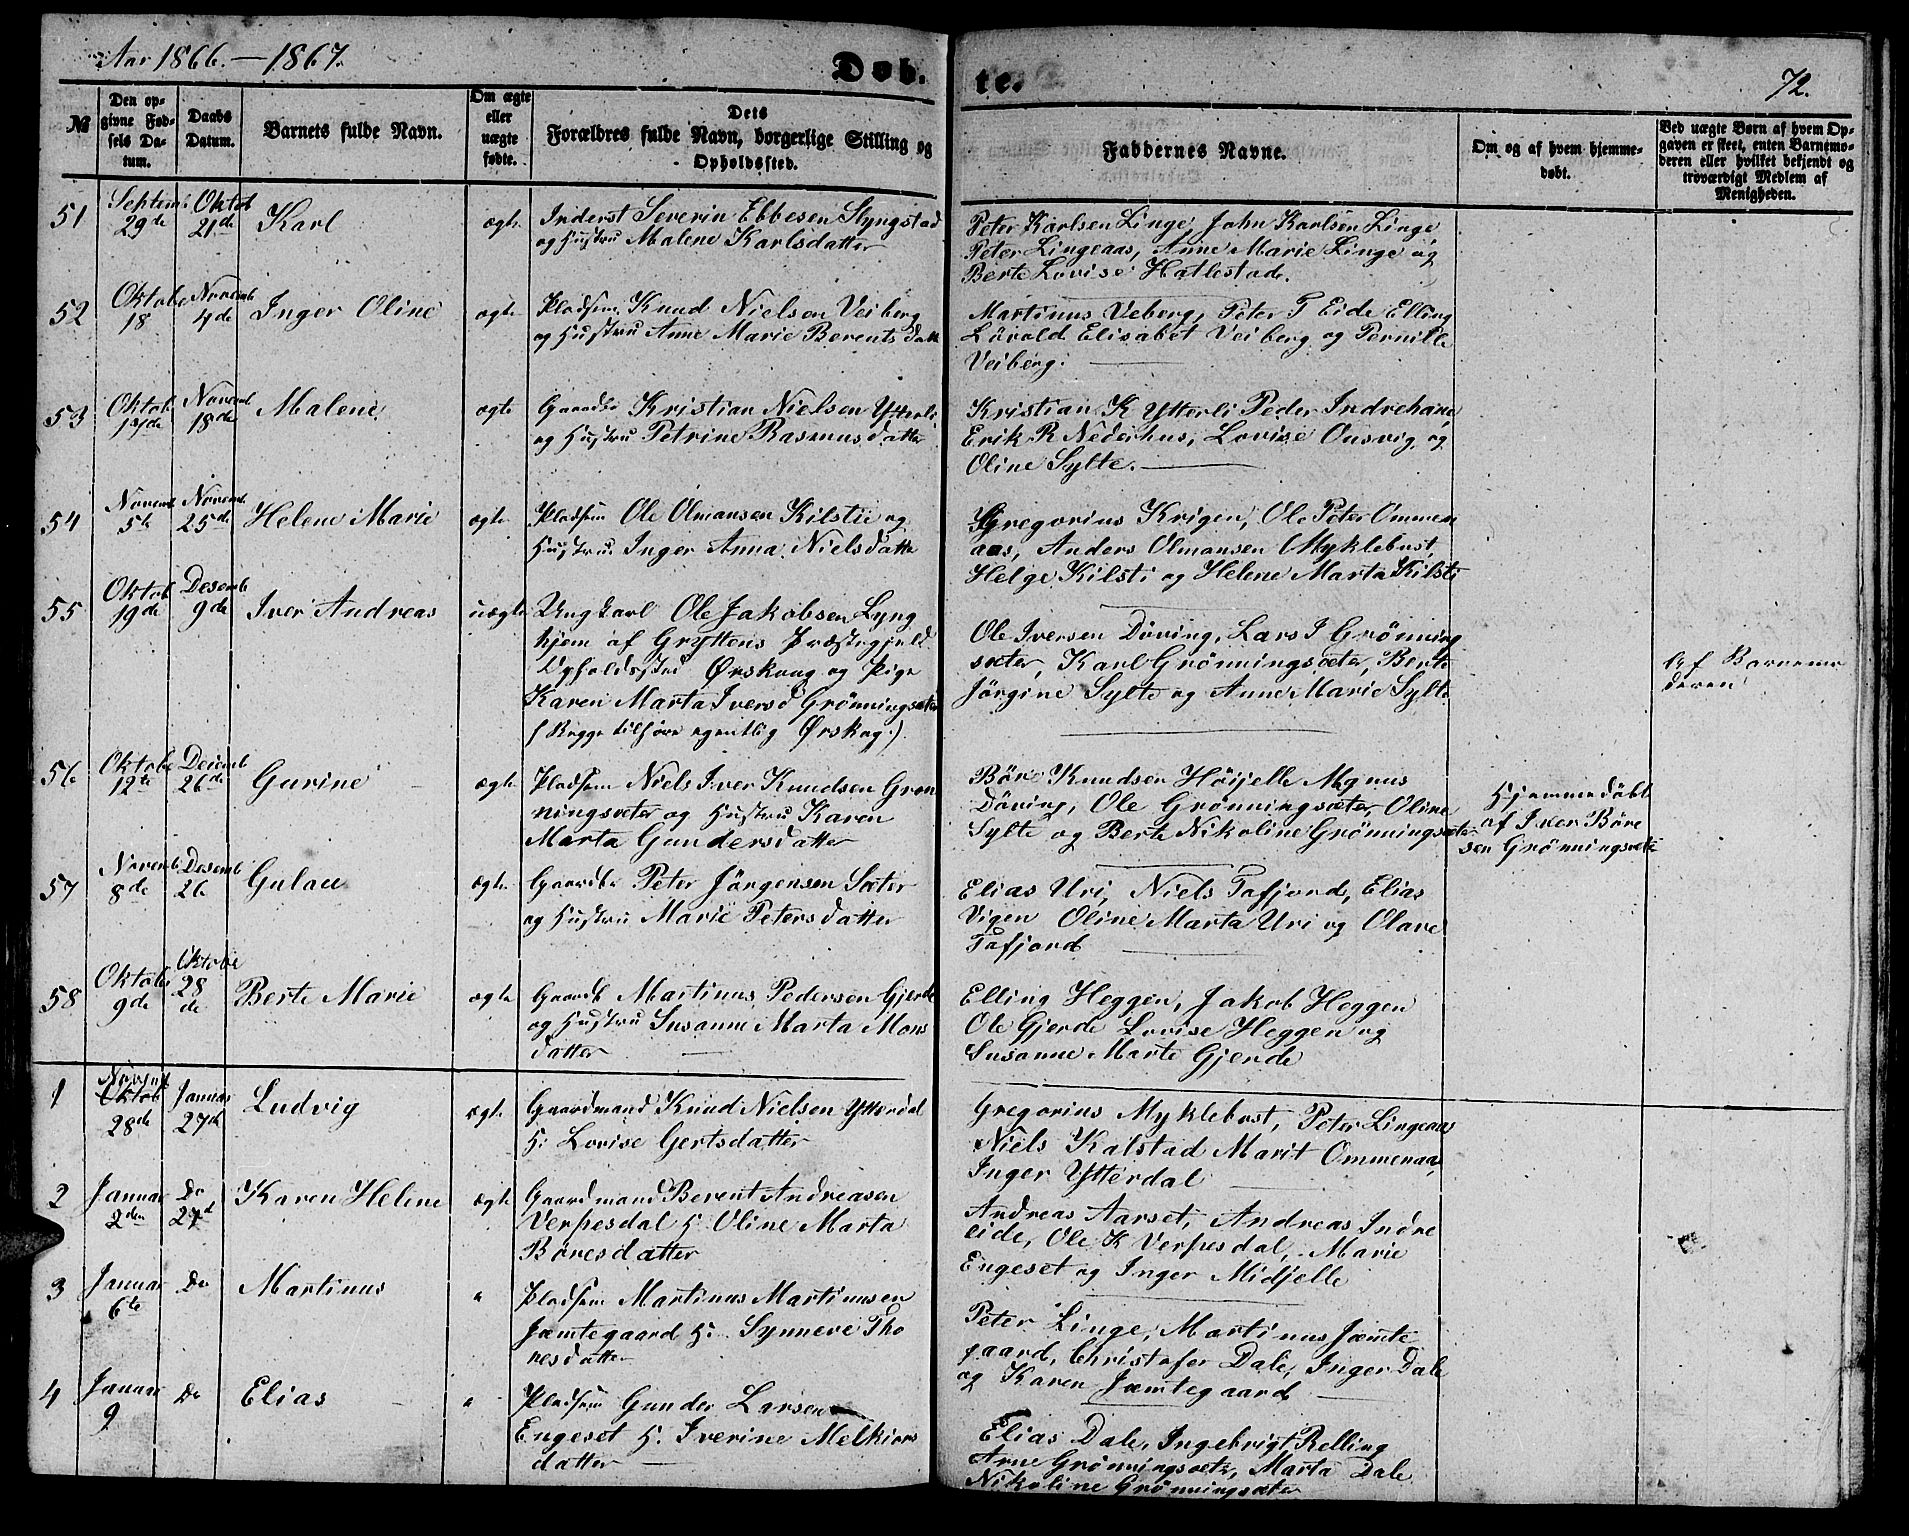 Aar 1866.—1867.
Døb-
te.
72.
№
Den op-
givne Fød-
sels Da-
tum.
Daabs
Datum.
Barnets fulde Navn.
Om ægte
eller
uægte
fødte.
Dets
Forældres fulde Navn, borgerlige Stilling og
Opholdssted.
Faddernes Navne.
Om og af hvem hjemme-
døbt.
Ved uægte Børn af hvem Op-
gaven er skeet, enten Barnemo-
deren eller hvilket bekjendt og
troværdigt Medlem af
Menigheden.
51
Septemb
29de
Oktob
21de
Karl
ægte
Inderst Severin Ebbesen Slyngstad
og Hustru Malene Karlsdatter
Peter Karlsen Linge, John Karlsen Linge
Peter Lingeaas, Anne Marie Linge og
Berte Lovise Hatlestad.
52
Oktobe
18
Novemb
4de
Inger Oline
ægte
Pladsm. Knud Nielsen Veiberg
og Hustru Anne Marie Berents datt
Martinus Veberg, Peter T Eide Elling
Løvold Elisabet Veiberg og Pernille
Veiberg.
53
Oktob
Novemb
18de
Malene
ægte
Gaardbr Kristian Nielsen Ytterli
og Hustru Petrine Rasmusdatter
Kristian K Ytterli Peder Indrehane
Erik R Nederhus, Lovise Onsvig og
Oline Sylte.
54
Novemb
5te
Novemb.
25de
Helene Marie
ægte
Pladsm Ole Olmansen Kilstie og
Hustru Inger Anna Nielsdatte
Gregorius Krigen, Ole Peter Ommen
aas, Anders Olmansen Myklebust,
Helge Kilsti og Helene Marta Kilsti
55
Oktob
19de
Desemb
9de
Iver Andreas
uægte
Ungkarl Ole Jakobsen Lyng
hjem af Gryttens Præstegjeld
Opholdssted Ørskoug og Pige
Karen Marta Iversd Grønningsæter
(Begge tilhøre egentlig Ørskog.)
Ole Iversen Döving, Lars I Grønning
sæter, Karl Grønningsæter, Berte
Jörgine Sylte og Anne Marie Sylte
Af Barnemo
deren
56
Oktobe
12te
Decemb
26de
Gurine
ægte
Pladsm Niels Iver Knudsen Gron
ningsæter og Hustru Karen
Marta Gundersdatter
Böre Knudsen Höijelle Magnus
Döving, Ole Grønningsæter, Oline
Sylte og Berte Nikoline Grønningsæter
Hjemmedöbt
af Iver Böre
sen Grønningsæte
57
Novemb
8de
Desemb
26
Gulau
ægte
Gaardbr Peter Jörgensen Sæter
og Hustru Marie Petersdatter
Elias Uri, Niels Tafjord, Elias
Vigen Oline Marta Uri og Olave
Tafjord
58
Oktobe
9de
Oktobe
28
de
Berte Marie
ægte
Gaardb Martinus Pedersen Gjerde
og Hustru Susanne Marta Mons
datter
Elling Heggen, Jakob Heggen
Ole Gjerde Lovise Heggen og
Susanne Marte Gjerde
1
Oktob
28de
Januar
27de
Ludvig
ægte
Gaardmand Knud Nielsen Ytterdal
H: Lovise Gertsdatter
Gregorius Myklebust, Peter Lingeaas
Niels Kalstad Marit Ommenaas
Inger Ytterdal
2
Januar
2den
Do
27d
Karen Helene
ægte
Gaardmand Berent Andreasen
Verpesdal H. Oline Marta
Böresdatter
Andreas Aarset, Andreas Indre
eide, Ole K Verpesdal, Marie
Engeset og Inger Midjelle
3
Januar
6te
Do
Martinus
"
Pladsm Martinus Martinusen
Jæmtegaard H: Synneve Tho
resdatter
Peter Linge, Martinus Jæmte
gaard, Christofer Dale, Inger Dale
og Karen Jæmtegaard
4
Januar
9
Do
Elias
"
Pladsm Gunder Larsen
Engeset H. Iverine Melkiors
datter
Elias Dale, Ingebrigt Relling
Arne Grønningsæte, Marta Dale
Nikoline Grønningsæter